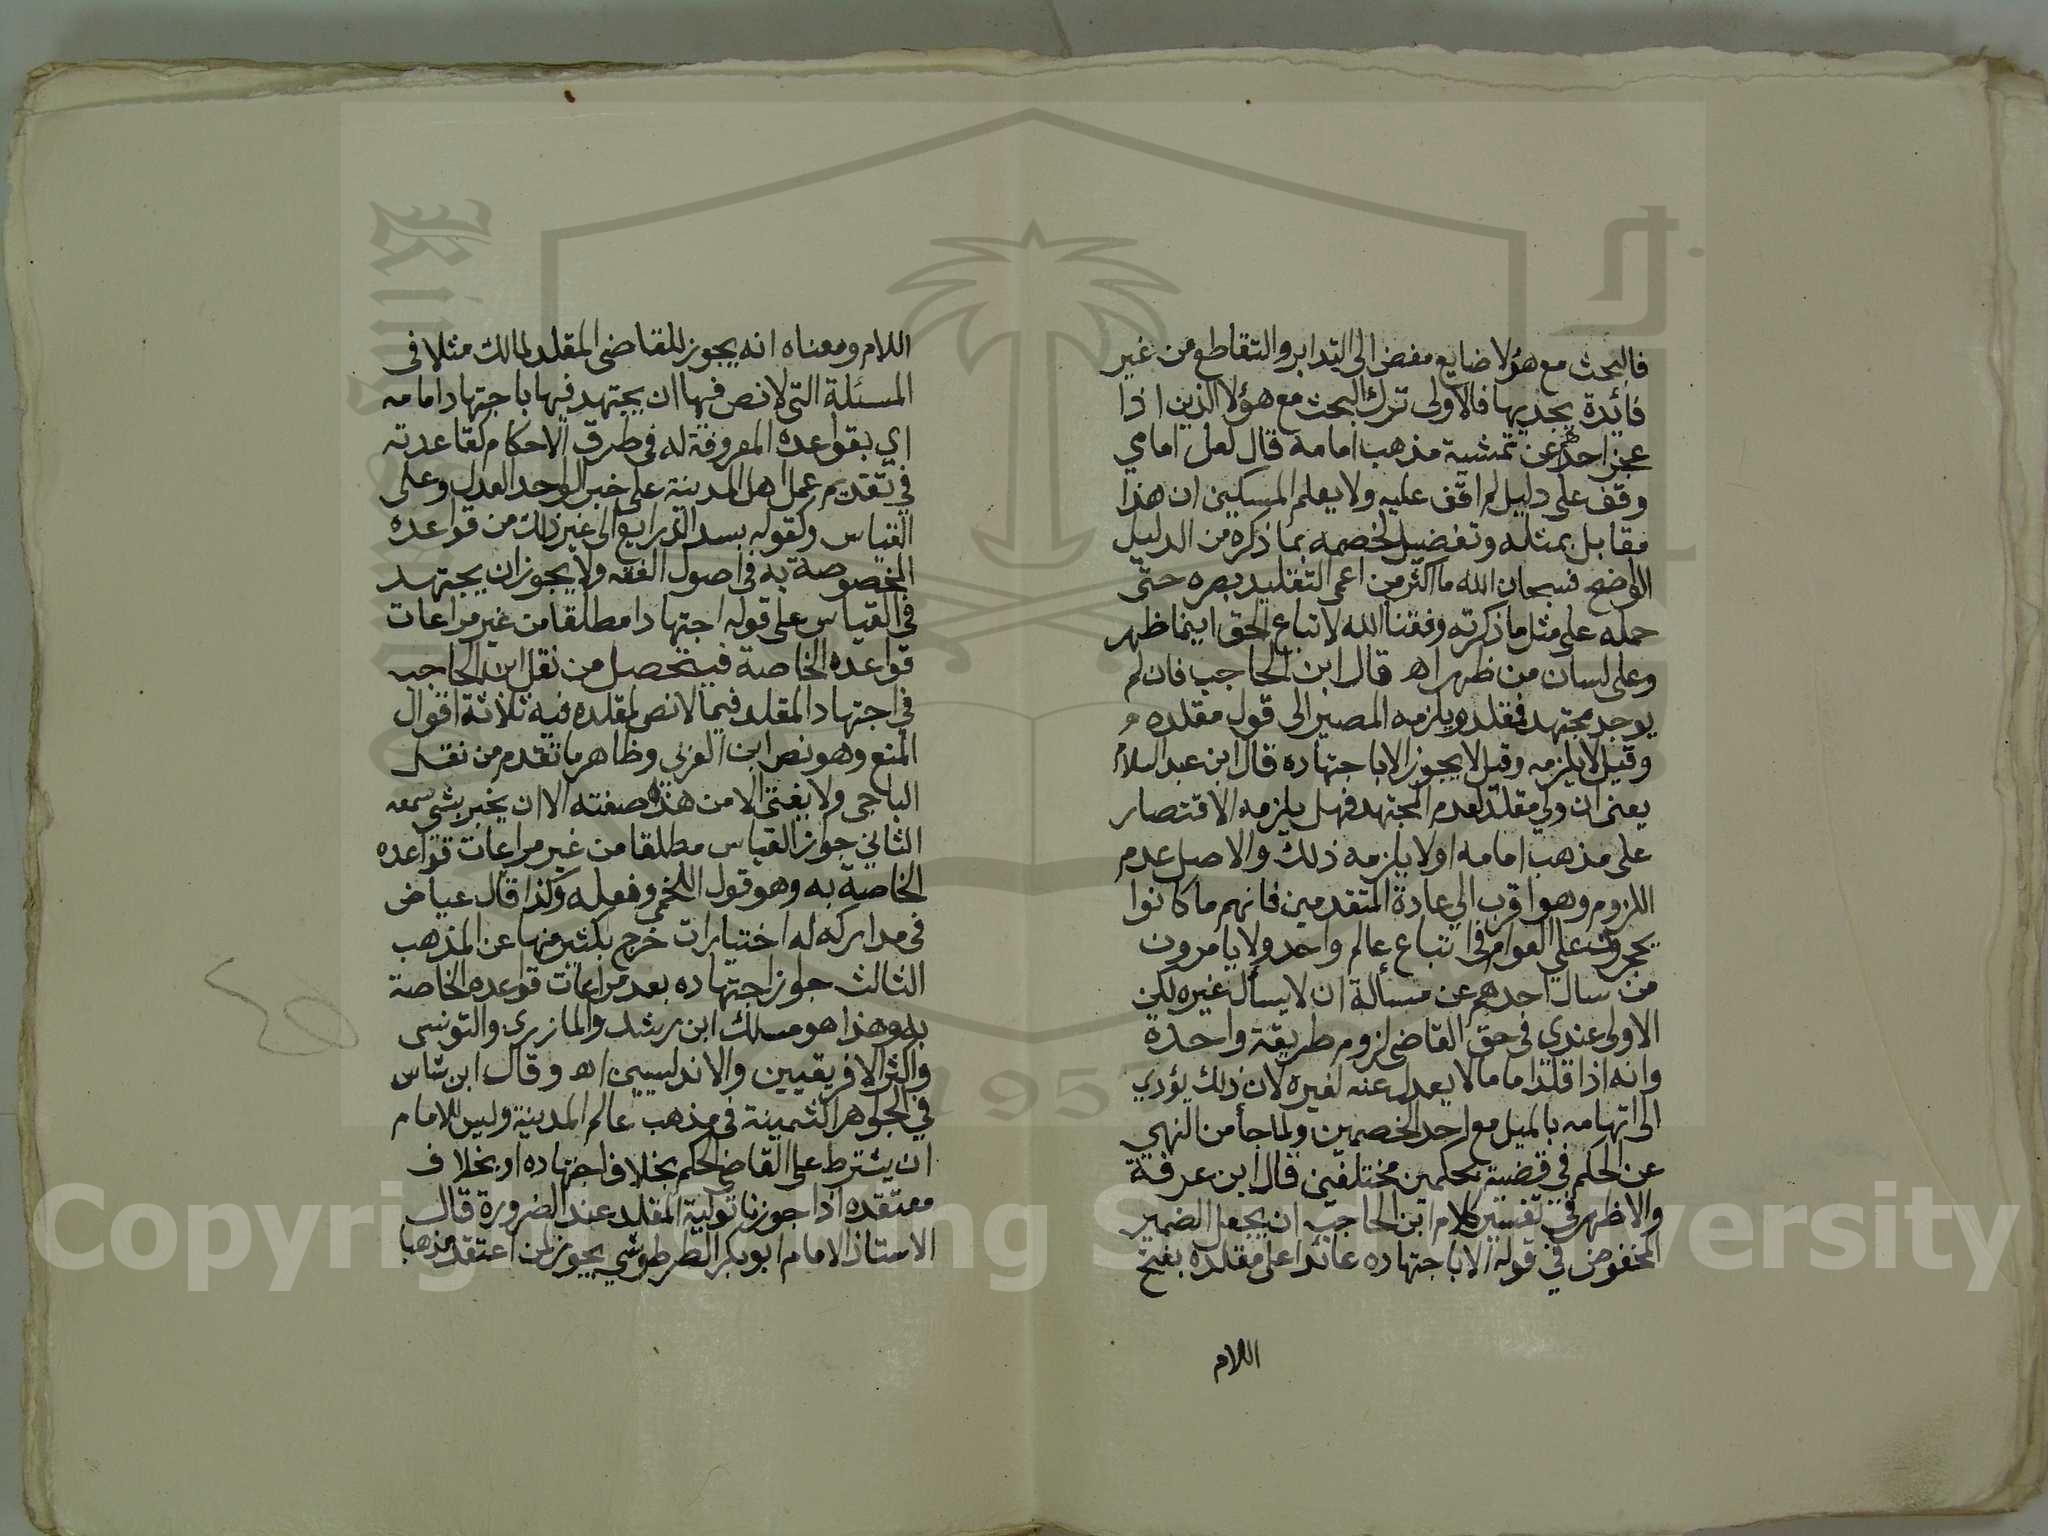 فالبحث مع هؤلا ضايع مفض الى التدابر والتقاطع من غير
فائدة يجديها فالاولى ترك البحث مع هؤلا الذين اذا
عجز احدهم عن تمشية مذهب امامه قال لعل امامي
وقف على دليل لم اقف عليه ولا يعلم المسكين ان هذا
مقابل بمثله وتفضيل لخصمه بما ذكره من الدليل
الواضح فسبحان الله ما اكثر من اعمى التقليد بصره حتى
حمله على مثل ما ذكرته وفقنا الله لاتباع الحق اينما ظهر
وعلى لسان من ظهر اه قال ابن الحاجب فان لم
يوجد مجتهد فمقلد ويلزمه المصير الى قول مقلده
وقيل لا يلزمه وقيل لا يجوز الا باجتهاده قال ابن عبد السلام
يعنى ان ولي مقلد لعدم المجتهد فهل يلزمه الاقتصار
على مذهب امامه اولا يلزمه ذلك والاصل عدم
اللزوم وهو اقرب الي عادة المتقدمين فانهم ما كانوا
يحجرون على العوام فى اتباع عالم واحد ولا يامرون
من سال احدهم عن مسألة ان لا يسأل غيره لكن
الاولى عندي فى حق القاضى لزوم طريقة واحدة
وانه اذا قلد اماما لا يعدل عنه لغيره لان ذلك يؤدي
الى اتهامه بالميل مع احد الخصمين ولما جأ من النهي
عن الحكم في قضية بحكمين مختلفين قال ابن عرفة
والاظهر في تفسير كلام ابن الحاجب ان يجعل الضمير
المخفوض في قوله الا باجتهاده عائدا على مقلده بفتح
اللام
اللام ومعناه انه يجوز للقاضى المقلد لمالك مثلا فى
المسئلة التى لا نص فيها ان يجتهد فيها باجتهاد امامه
اي بقواعده المعروفة له فى طرق الاحكام كقاعدته
في تقديم عمل اهل المدينة على خبر الواحد العدل وعلى
القياس وكقوله بسد الذرايع الى غير ذلك من قواعده
المخصوصة به فى اصول الفقه ولا يجوز ان يجتهد
في القياس على قوله اجتهادا مطلقا من غير مراعات
قواعده الخاصة فيتحصل من نقل ابن الحاجب
في اجتهاد المقلد فيما لا نص لمقلده فيه ثلاثة اقوال
المنع وهو نص ابن العربي وظاهر ما تقدم من نقل
الباجي ولا يفتى الا من هذه صفته الا ان يخبر بشى سمعه
الثاني جواز القياس مطلقا من غير مراعات قواعده
الخاصة به وهو قول اللخمي وفعله وكذا قال عياض
فى مداركه له اختيارات خرج بكثير منها عن المذهب
الثالث جواز اجتهاده بعد مراعات قواعده الخاصة
به وهذا هو مسلك ابن رشد والمازرى والتونسى
واكثر الافريقيين والاندلسيين اه وقال ابن شاس
في الجواهر الثمينة فى مذهب عالم المدينة وليس للامام
ان يشترط على القاضى الحكم بخلاف اجتهاده او بخلاف
معتقده اذا جوزنا تولية المقلد عند الضرورة قال
الاستاذ الامام ابو بكر الطرطوشي يجوز لمن اعتقد مذهبا
Copyright © King Saud University
1957